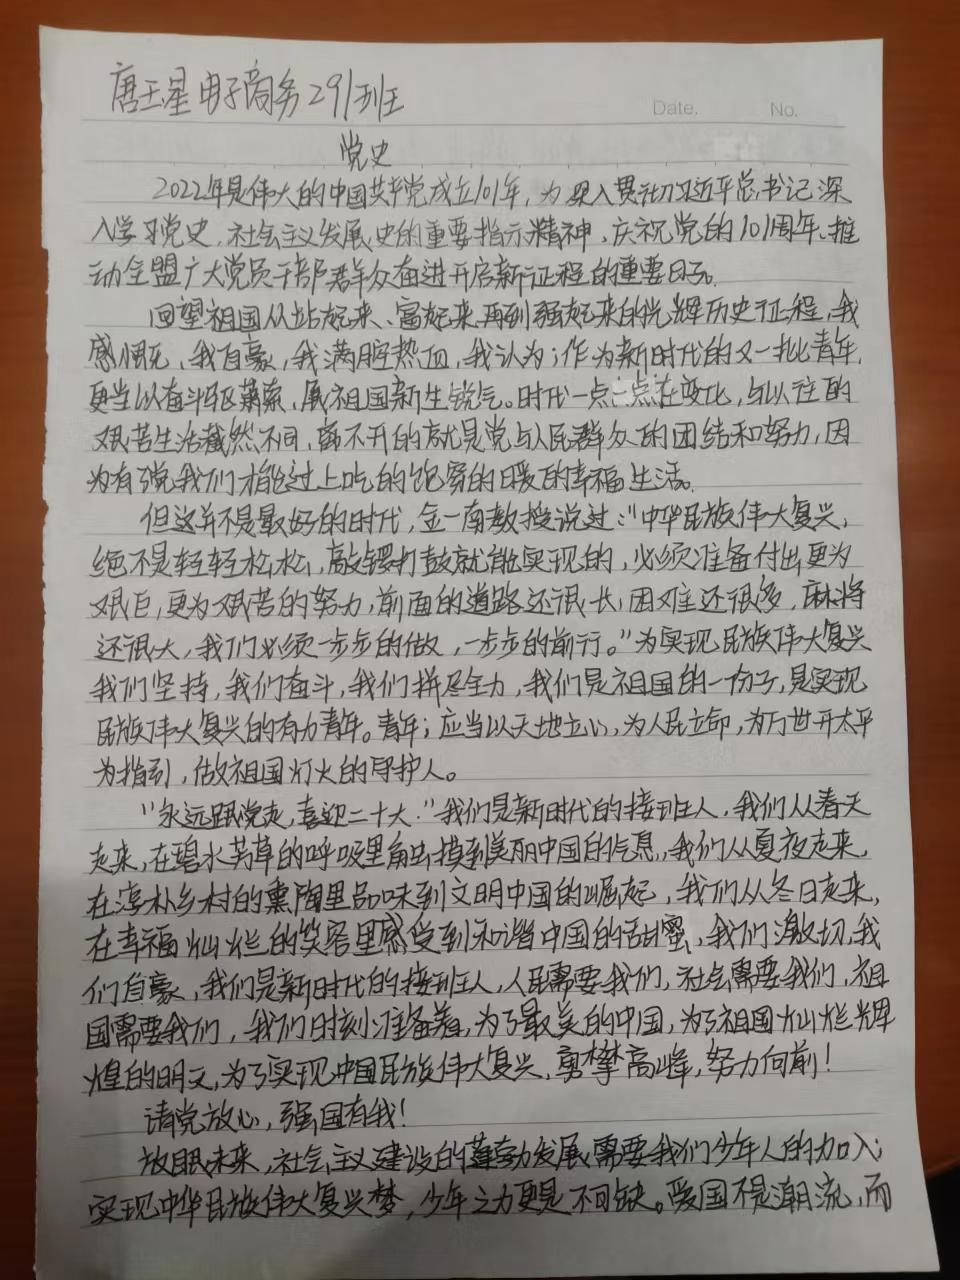 唐玉星 电子商务291班
Date. No.
党史
2022年是伟大的中国共产党成立101年，为深入贯彻习近平总书记深
入学习党史、社会主义发展史的重要指示精神、庆祝党的101周年、推
动全盟广大党员干部群众奋进开启新征程的重要日子。
回望祖国从站起来、富起来再到强起来的光辉历史征程，我
感慨，我自豪，我满腔热血，我认为；作为新时代的又一批青年，
更当以奋斗驱萧索，展祖国新生锐气。时代一点一点在变化，与以往的
艰苦生活截然不同，离不开的就是党与人民群众的团结和努力，因
为有党我们才能过上吃的饱穿的暖的幸福生活。
但这并不是最好的时代，金一南教授说过：“中华民族伟大复兴，
绝不是轻轻松松，敲锣打鼓就能实现的，必须准备付出更为
艰巨，更为艰苦的努力，前面的道路还很长，困难还很多，麻将
还很大，我们必须一步步的做，一步步的前行。”为实现民族伟大复兴
我们坚持，我们奋斗，我们拼尽全力，我们是祖国的一份子，是实现
民族伟大复兴的有力青年。青年；应当以天地立心，为人民立命，为万世开太平
为指引，做祖国灯火的守护人。
“永远跟党走，喜迎二十大.”我们是新时代的接班人，我们从春天
走来，在碧水芳草的呼吸里触摸到美丽中国的信息，我们从夏夜走来，
在淳朴乡村的熏陶里品味到文明中国的崛起，我们从冬日走来，
在幸福灿烂的笑容里感受到和谐中国的甜蜜，我们激切，我
们自豪，我们是新时代的接班人，人民需要我们，社会需要我们，祖
国需要我们，我们时刻准备着，为了最美的中国，为了祖国灿烂辉
煌的明文，为了实现中国民族伟大复兴，勇攀高峰，努力向前！
请党放心，强国有我！
放眼未来，社会主义建设的蓬勃发展需要我们少年人的加入；
实现中华民族伟大复兴梦，少年之力更是不可缺。爱国不是潮流，而